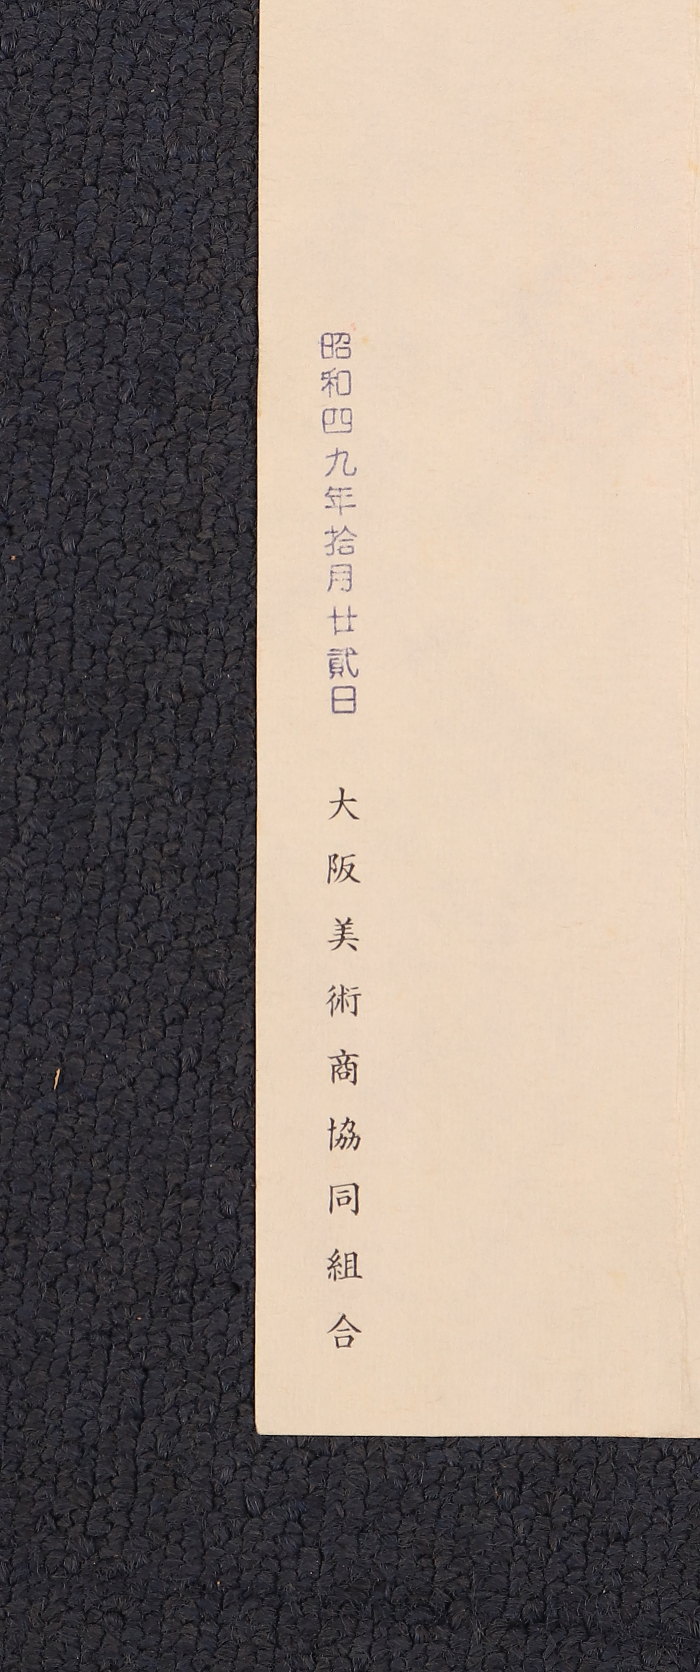 昭和四九年拾月廿貳日
大阪美術商協同組合